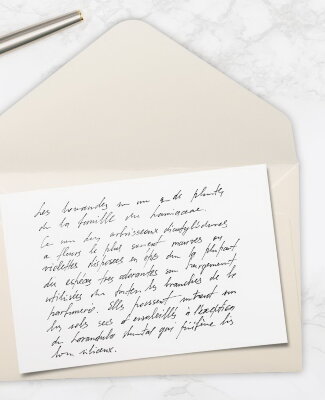 Les lavandes sont un genre de plantes
de la famille des Lamiaceae.
Ce sont des arbrisseaux dicotylédones
à fleurs le plus souvent mauves ou
violettes disposées en épis dont la plupart
des espèces, très odorantes sont largement
utilisées dans toutes les branches de la
parfumerie. Elles poussent surtout sur
les sols secs et ensoleillés à l'exception
du Lavandula stoechas qui préfère les
sols siliceux.